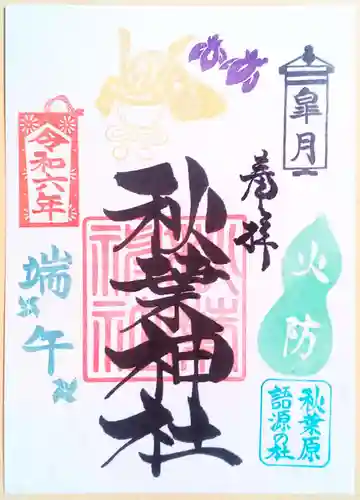 皐月
奉拝
秋葉神社
火防
秋葉原
語源の社
令和六年
端午